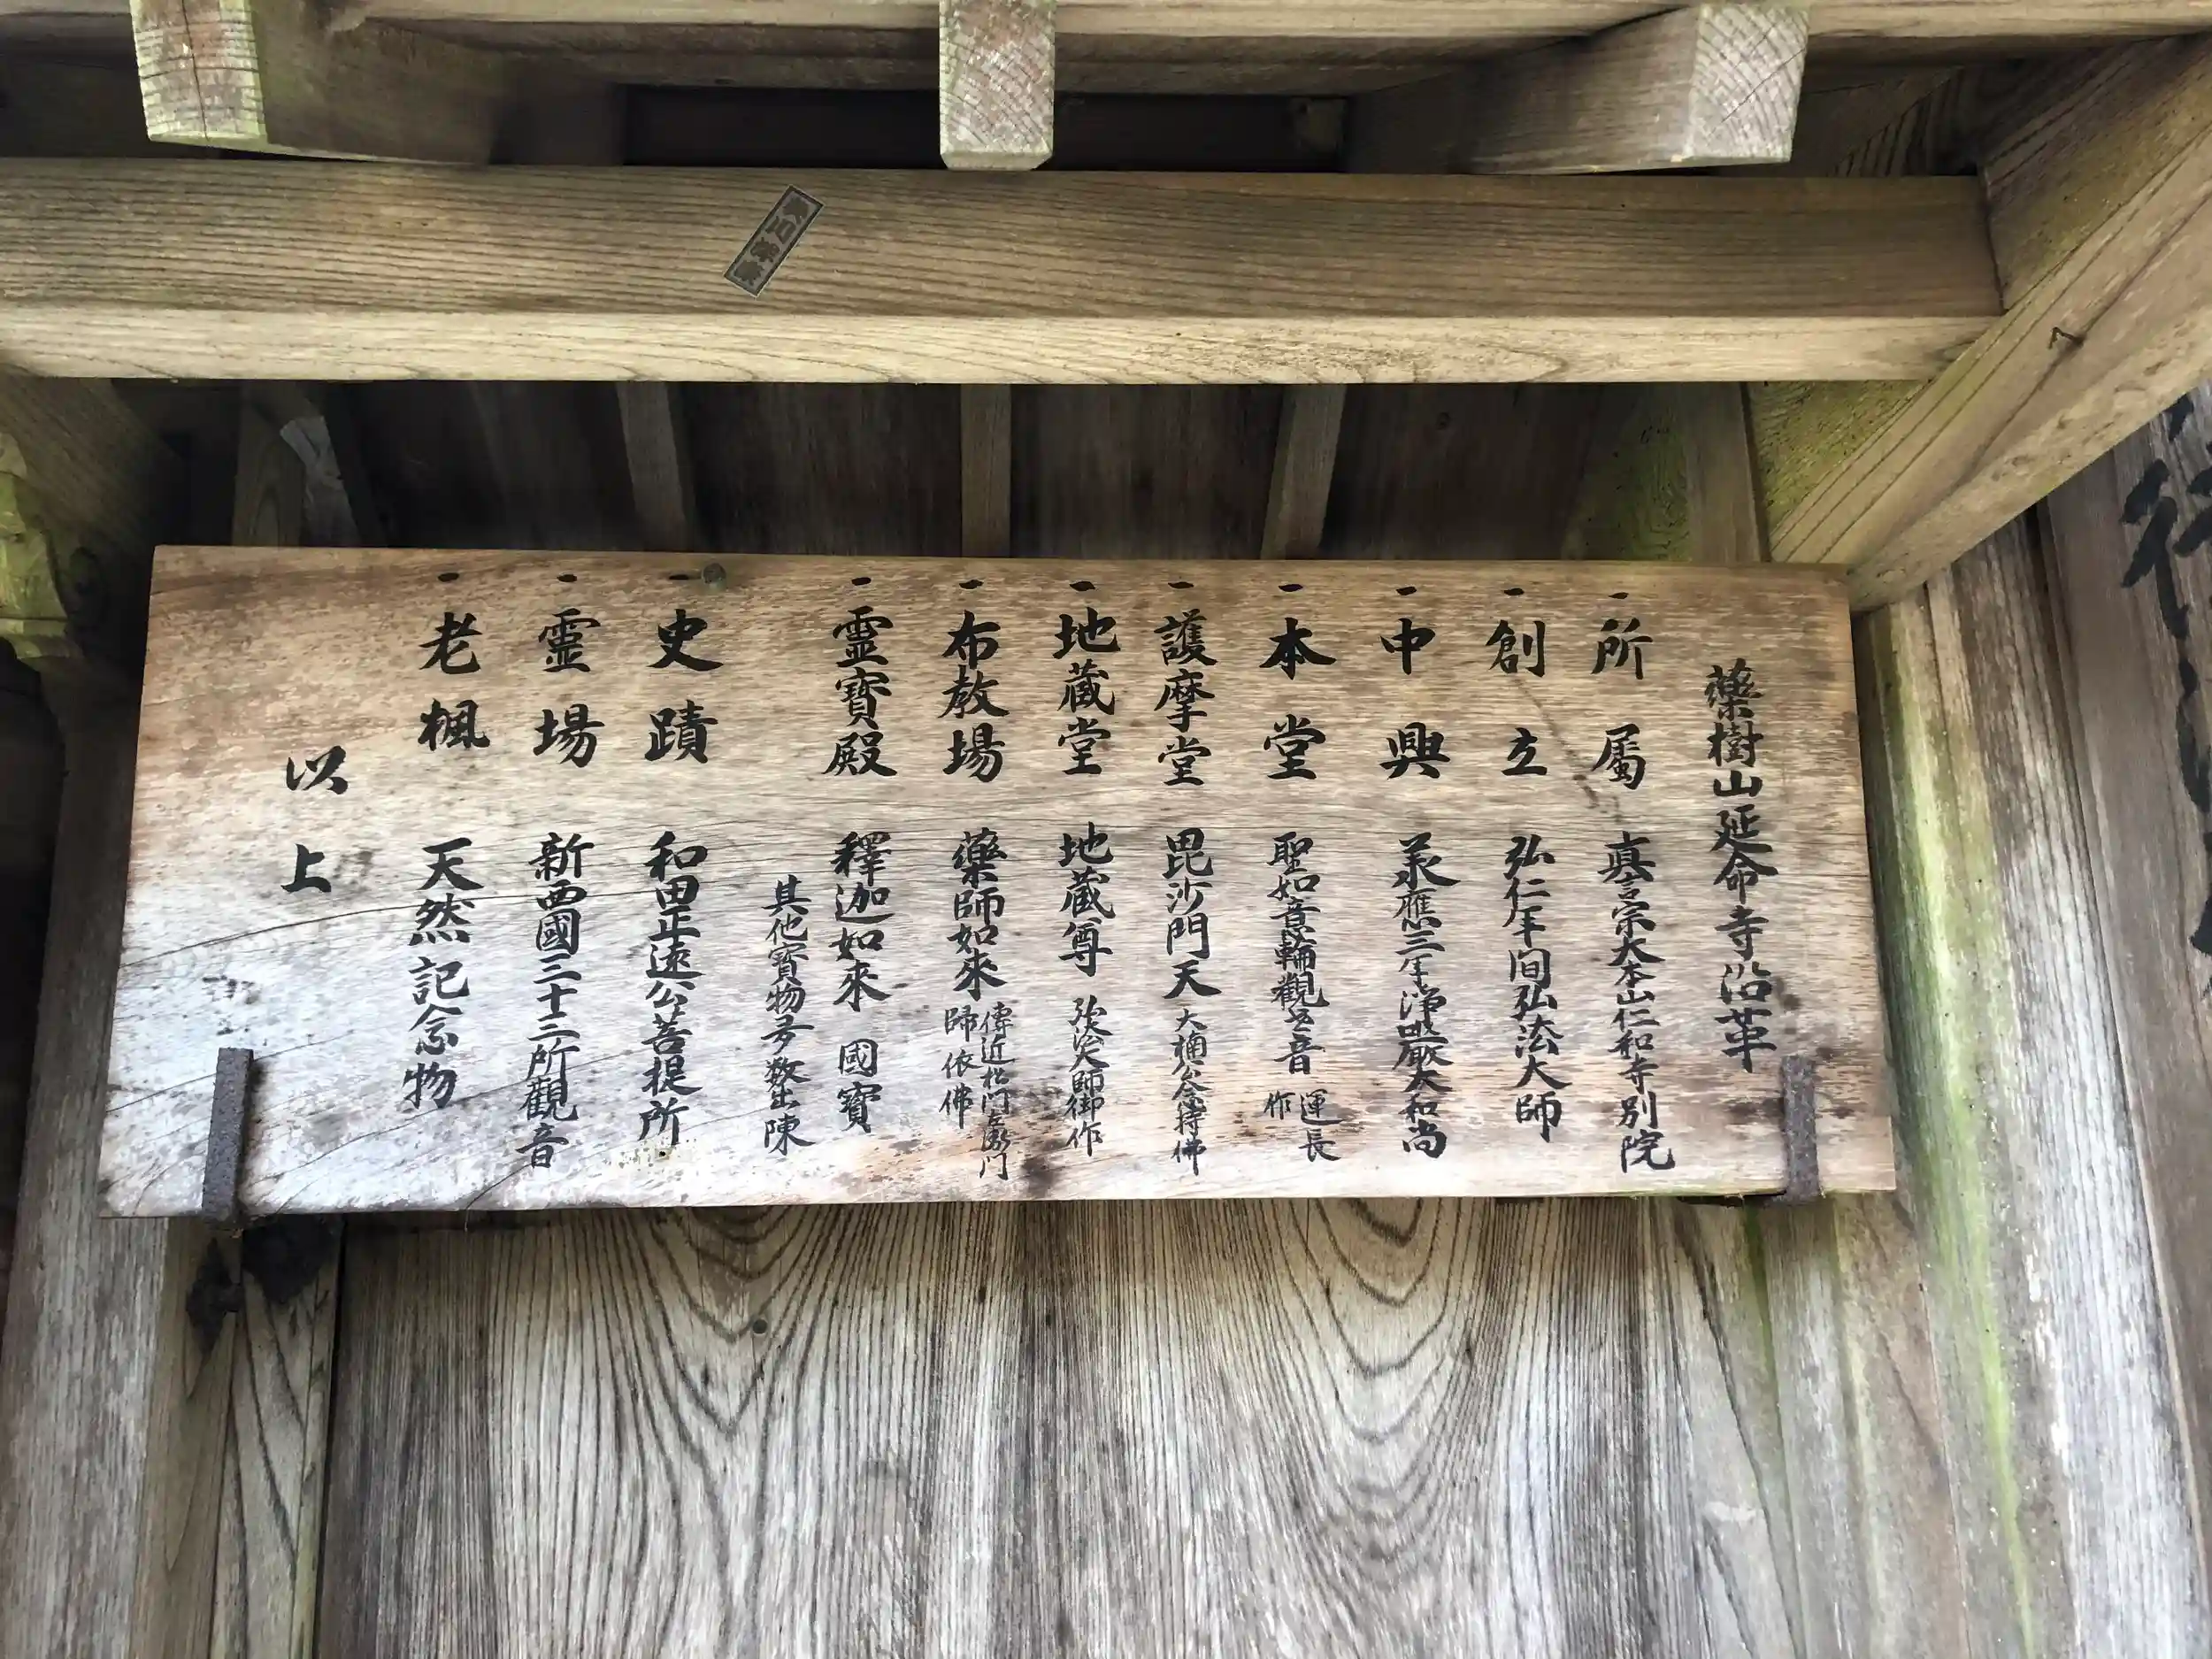 藥樹山延命寺沿革
一 所屬 真言宗大本山仁和寺別院
一 創立 弘仁年间弘法大師
一 中興 承應三年浄嚴大和尚
一 本堂 聖如意輪觀世音 運長作
一 護摩堂 毘沙門天 大楠公念持佛
一 地蔵堂 地蔵尊 弘法大師御作
一 布教場 藥師如來 傳近松門左衛門歸依佛
一 靈寶殿 釋迦如來 國寶
其他寶物多数出陳
一 史蹟 和田正遠公菩提所
一 霊場 新西國三十三所觀音
一 老楓 天然記念物
以上